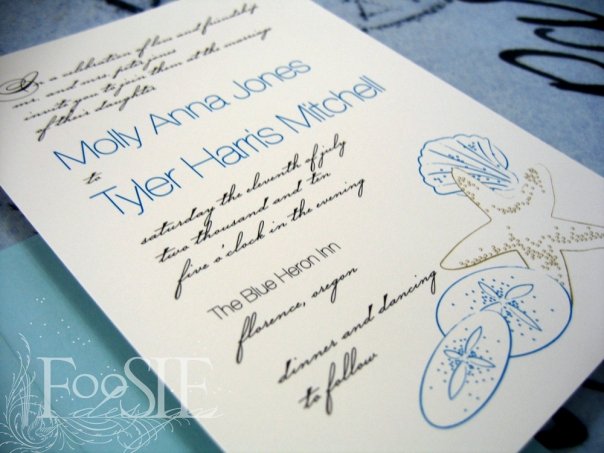 In a celebration of love and friendship
mr. and mrs. pete jones
invite you to join them at the marriage
of their daughter
Molly Anna Jones
to
Tyler Harris Mitchell
saturday the eleventh of july
two thousand and ten
five o'clock in the evening
The Blue Heron Inn
florence, oregon
dinner and dancing
to follow
FooSIE
designs